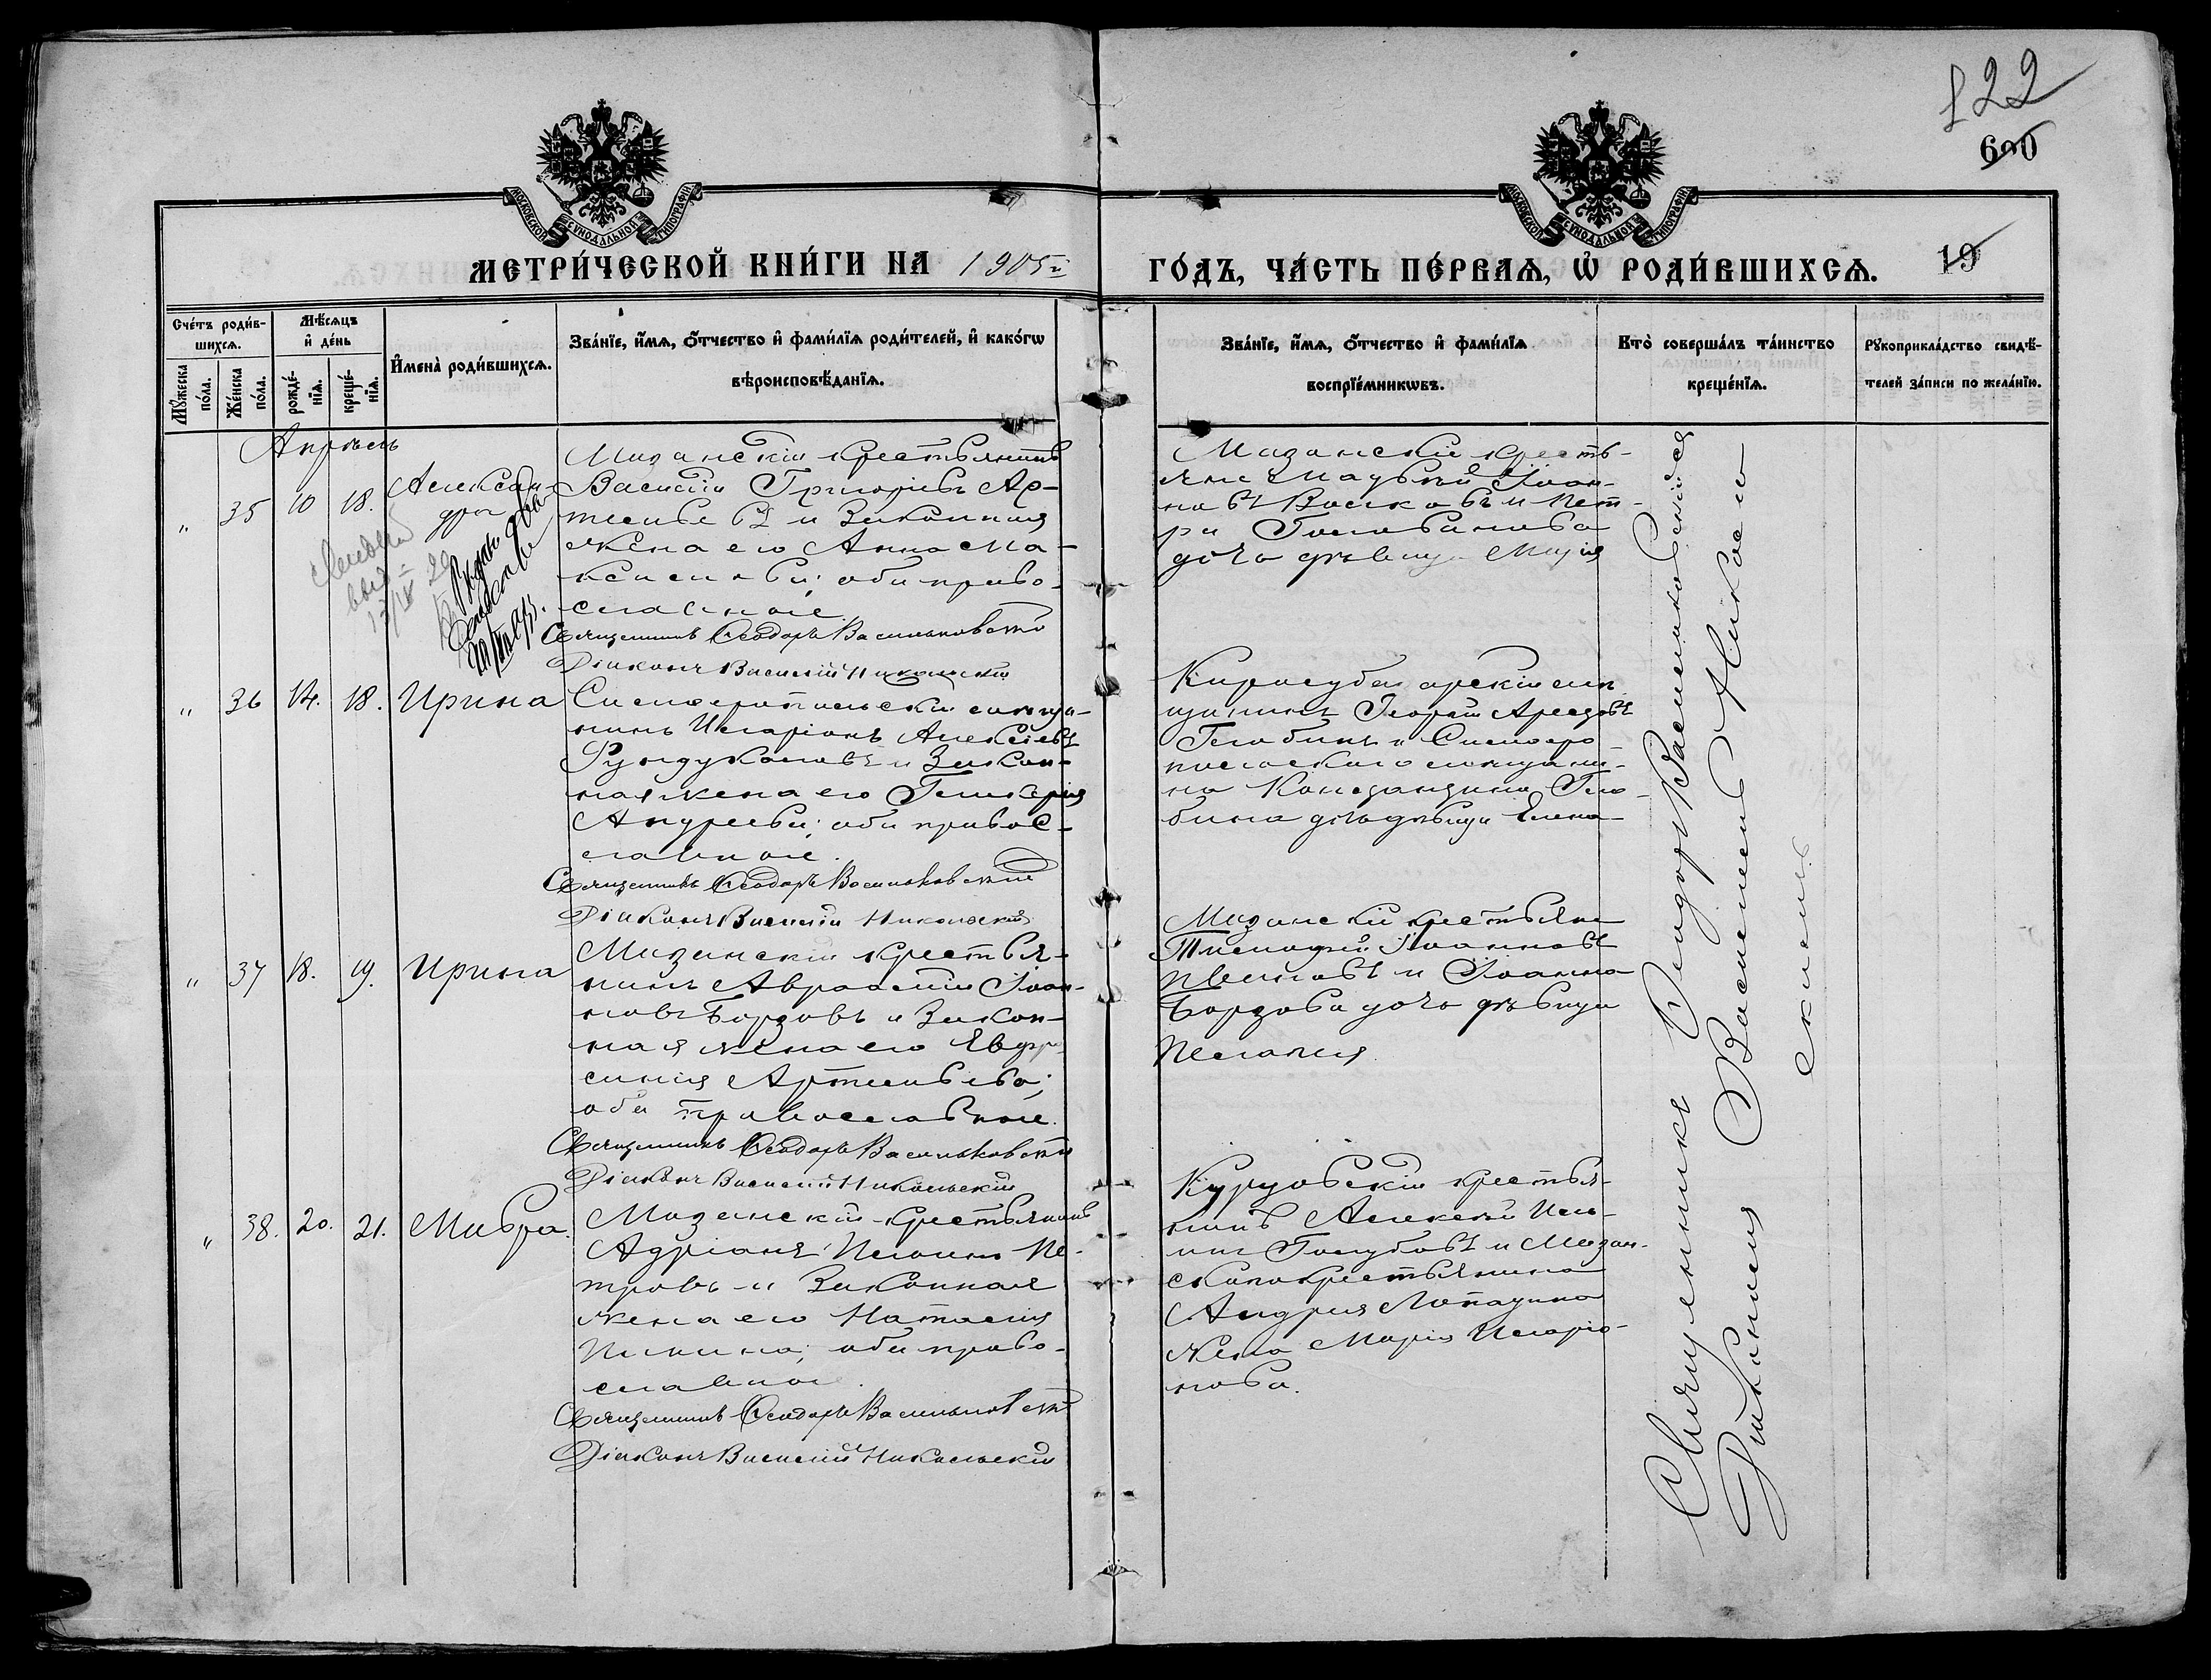 122
600
МОСКОВСКОЙ СѴНОДАЛЬНОЙ ТИПОГРАФІИ
МОСКОВСКОЙ СѴНОДАЛЬНОЙ ТИПОГРАФІИ
МЕТРИ́ЧЕСКОЙ КНИ́ГИ НА 1905й
ГО́ДЪ, ЧА́СТЬ ПЕ́РВАѦ, Ѡ҆ РОДИ́ВШИХСѦ.
19
Сче́тъ роди́в-
шихсѧ.
Мꙋ́жеска по́ла.
Же́нска по́ла.
Мѣ́сѧцъ и҆ де́нь
рожде́-нїѧ.
креще́-нїѧ.
И҆мена̀ роди́вшихсѧ.
Зва́нїе, и҆́мѧ, ѻ҆́тчество и҆ фами́лїѧ роди́телей, и҆ како́гѡ
вѣроисповѣ́данїѧ.
Зва́нїе, и҆́мѧ, ѻ҆́тчество и҆ фами́лїѧ
воспрїе́мникѡвъ.
Кто̀ соверша́лъ та́инство
креще́нїѧ.
Рꙋкоприкла́дство свидѣ́-
телей за́писи по жела́нїю.
Апрѣль
„ 35 10 18.
Алексан-
дра
Мазанскій крестьянинъ
Василій Григоріевъ Ар-
темьевъ и Законная
жена его Анна Ма-
ксимова; оба право-
славные
Священникъ Ѳеодоръ Васильковскій
Діаконъ Василій Никольскій
Мазанскіе кресть-
яне Матвѣй Іоан-
новъ Волковъ и Пет-
ра Голованова
дочь дѣвица Марія
„ 36 14. 18. Ирина
Симферопольскій мѣща-
нинъ Иларіонъ Алексіевъ
Рундуковъ и Закон-
ная жена его Гликерія
Андреева; оба правос-
лавные.
Священникъ Ѳеодоръ Васильковскій
Діаконъ Василій Никольскій
Карасубазарскій мѣ
щанинъ Георгій
Глобинъ и Симферо-
польскаго мѣщани-
на Гло-
бина дочь дѣвица Елена
„ 37 18. 19. Ирина
Мазанскій крестья-
нинъ Авраамій Іоан-
новъ Борзовъ и Закон-
ная жена его Евфро
синія Артемьева;
оба православные.
Священникъ Ѳеодоръ Васильковскій
Діаконъ Василій Никольскій
Мазанскій крестьяне
Тимофей Іоанновъ
Ивановъ и Іоанна
Борзова дочь дѣвица
Пелагия.
„ 38. 20. 21. Мавра.
Мазанскій крестьянинъ
Адріанъ Пе-
тровъ и Законная
жена его Наталія
оба право-
славные.
Священникъ Ѳеодоръ Васильковскій
Діаконъ Василій Никольскій
крестья-
нинъ Алексѣй Иль-
инъ Голубовъ и Мазан-
скаго крестьянина
Андрея Лопатина
жена Марія Иларіо-
нова.
Священникъ Ѳеодоръ Васильковскій съ
Діакономъ Василіемъ Николь
скимъ